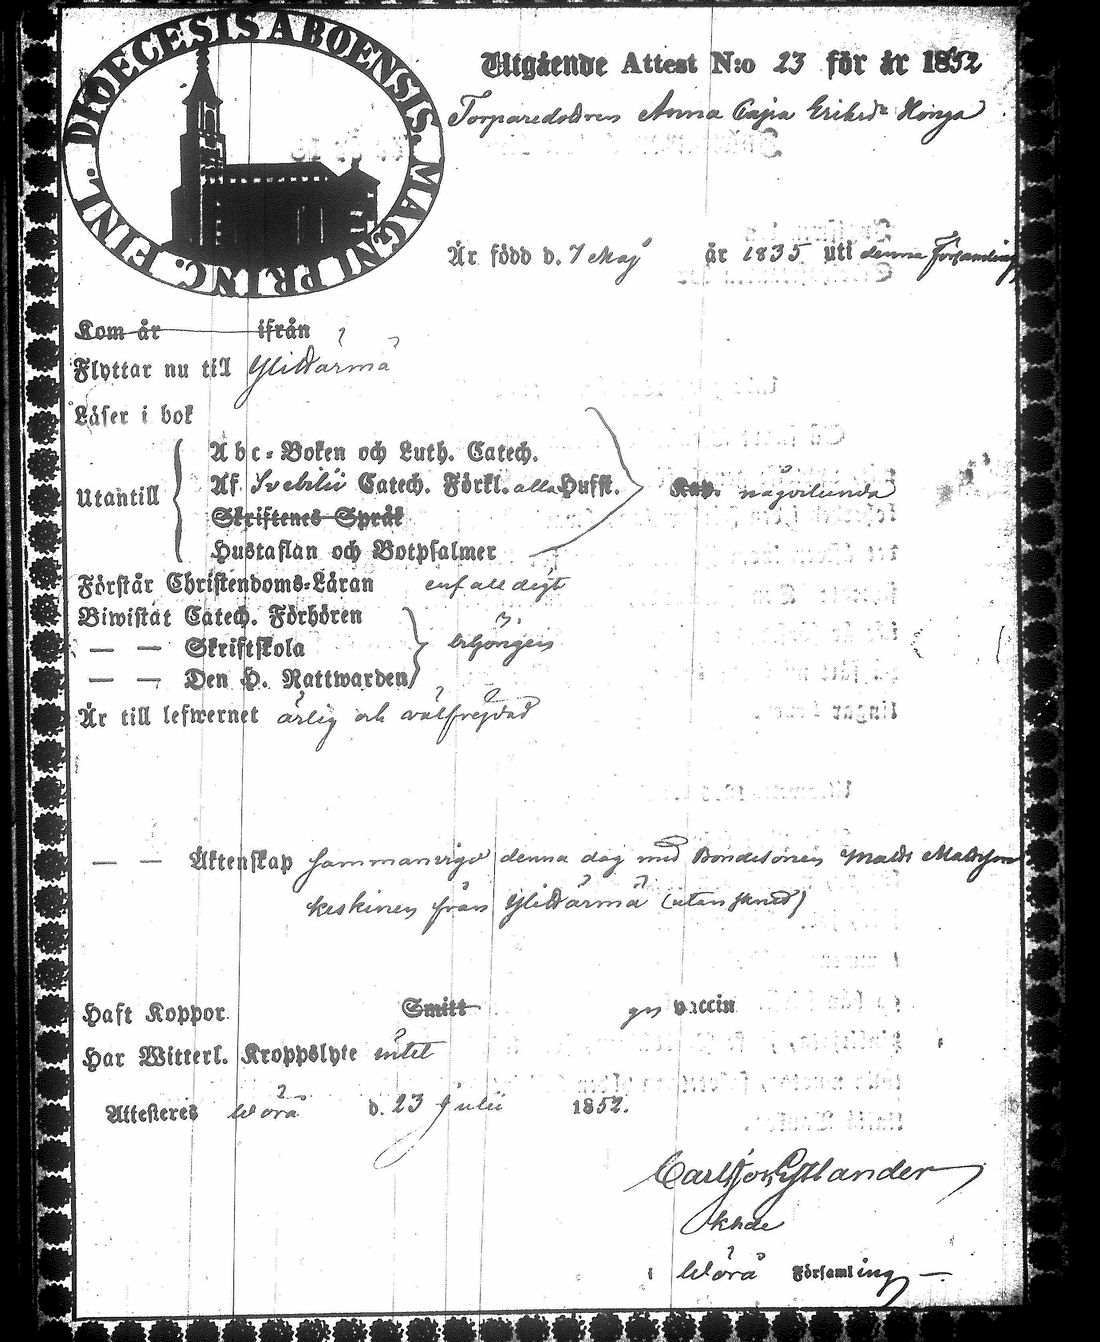 DIOECESIS ABOENSIS. MAGNI PRINC. FINL.
Utgående Attest N:o 23 för år 1852
Torparedottren Anna Cajsa Eriksdr
Är född d. 7 Maj år 1835 uti denna Församling
Kom år ifrån
Flyttar nu till Ylihärmä
Läser i bok
Utantill
Abc-Boken och Luth. Catech.
Af Svebilii Catech. Förkl. alla Hufst. någorlunda
Skriftenes Språk
Hustaflan och Botpsalmer
Förstår Christendoms-Läran enfalldigt
Biwistat Catech. Förhören
— — Skriftskola
— — Den H. Nattwarden
Är till lefwernet ärlig och välfrejdad
— — Äktenskap sammanvigd denna dag med Bondesonen Matts Mattsson
från Ylihärmä
Haft Koppor Smitt vaccin
Har Witterl. Kroppslyte intet
Attesteres Wörå d. 23 Julii 1852.
Carl
i Wörå Församling